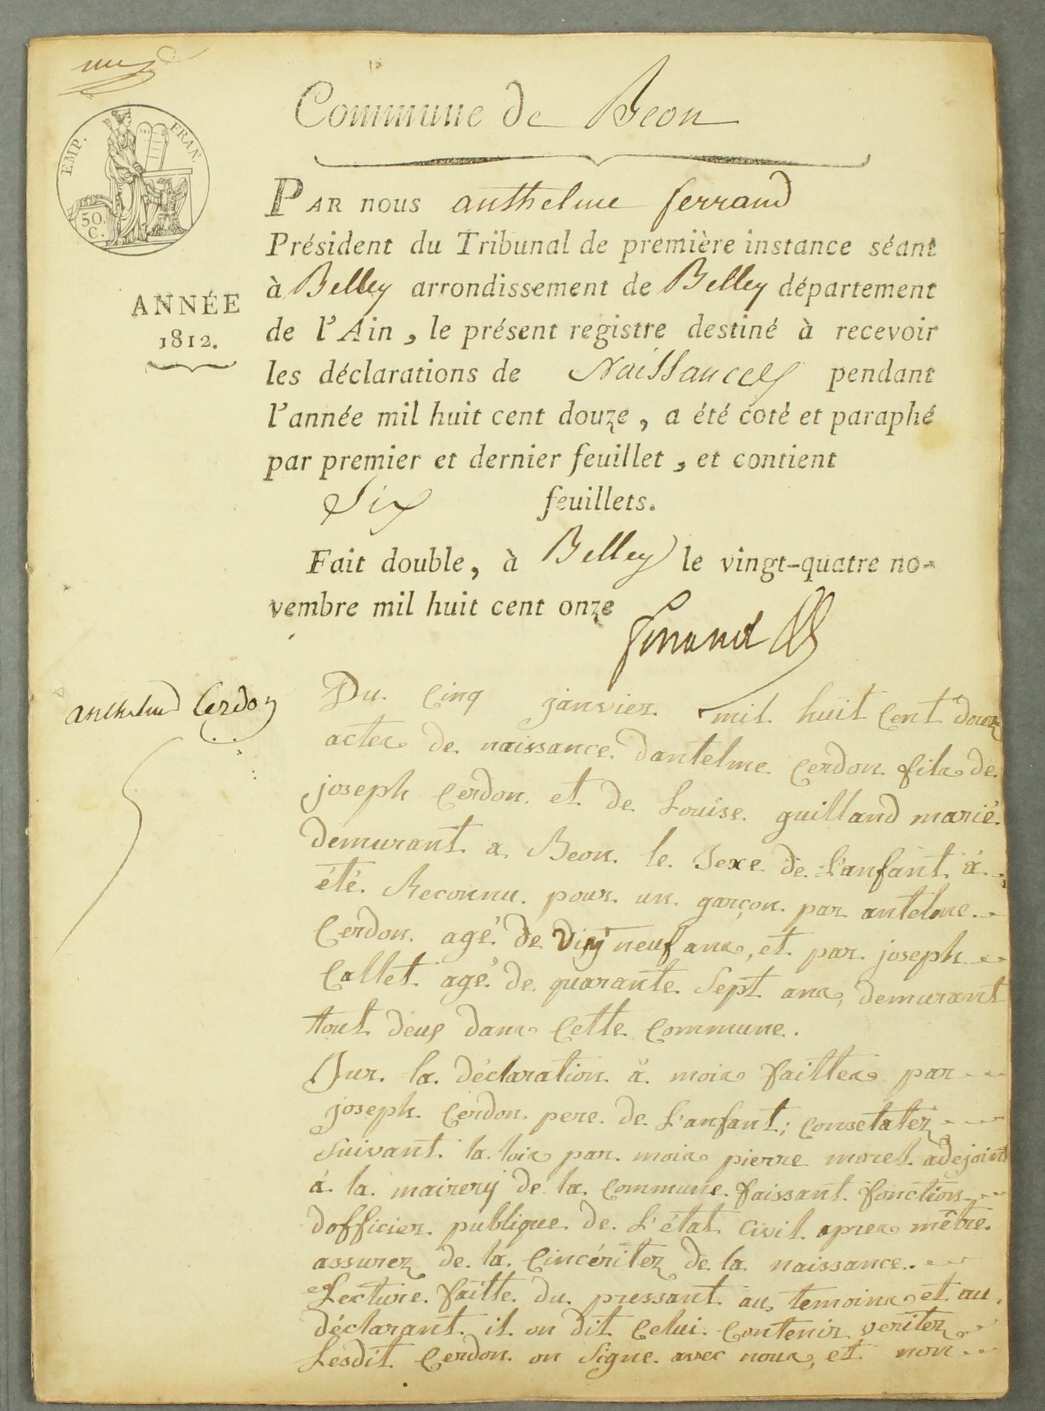 Commune de Beon
EMP. FRAN.
50.
C.
ANNÉE
1812.
PAR nous anthelme ferrand
Président du Tribunal de première instance séant
à Belley arrondissement de Belley département
de l'Ain, le présent registre destiné à recevoir
les déclarations de Naissances pendant
l'année mil huit cent douze, a été coté et paraphé
par premier et dernier feuillet, et contient
Six feuillets.
Fait double, à Belley le vingt-quatre no-
vembre mil huit cent onze
ferrand
anthelme Cerdon
Du. Cinq janvier. mil. huit Cent douze
actes de. naissance. dantelme. Cerdon. fils de.
joseph Cerdon. et. de Louise. guilland marié.
demurant. a. Beon. le. Sexe. de. l'anfant. á.
été. Reconnu. pour. un. garçon. par. antelme.
Cerdon. agé. de neuf ans, et. par. joseph
Callet. agé. de. quarante. Sept. ans, demurant
tout deus dans Cette. Commune.
Sur. la. déclaration. à. mois faittes par
joseph. Cerdon. pere. de. L'anfant; Constatez
Suivant. la. lois par. mois pierre. morel. adejoint
á. la. mairery de. la. Commune. faissant. fonction
dofficier. publique. de. L'état. Civil. apres mêtre.
assurez de. la. Cincéritez de. la. naissance..
Lecture. faitte. du. pressant. au. temoins et. au.
déclarant. il. on dit Celui. Contenir. veritez
Lesdit. Cerdon. on Signe. avec nous, et. non